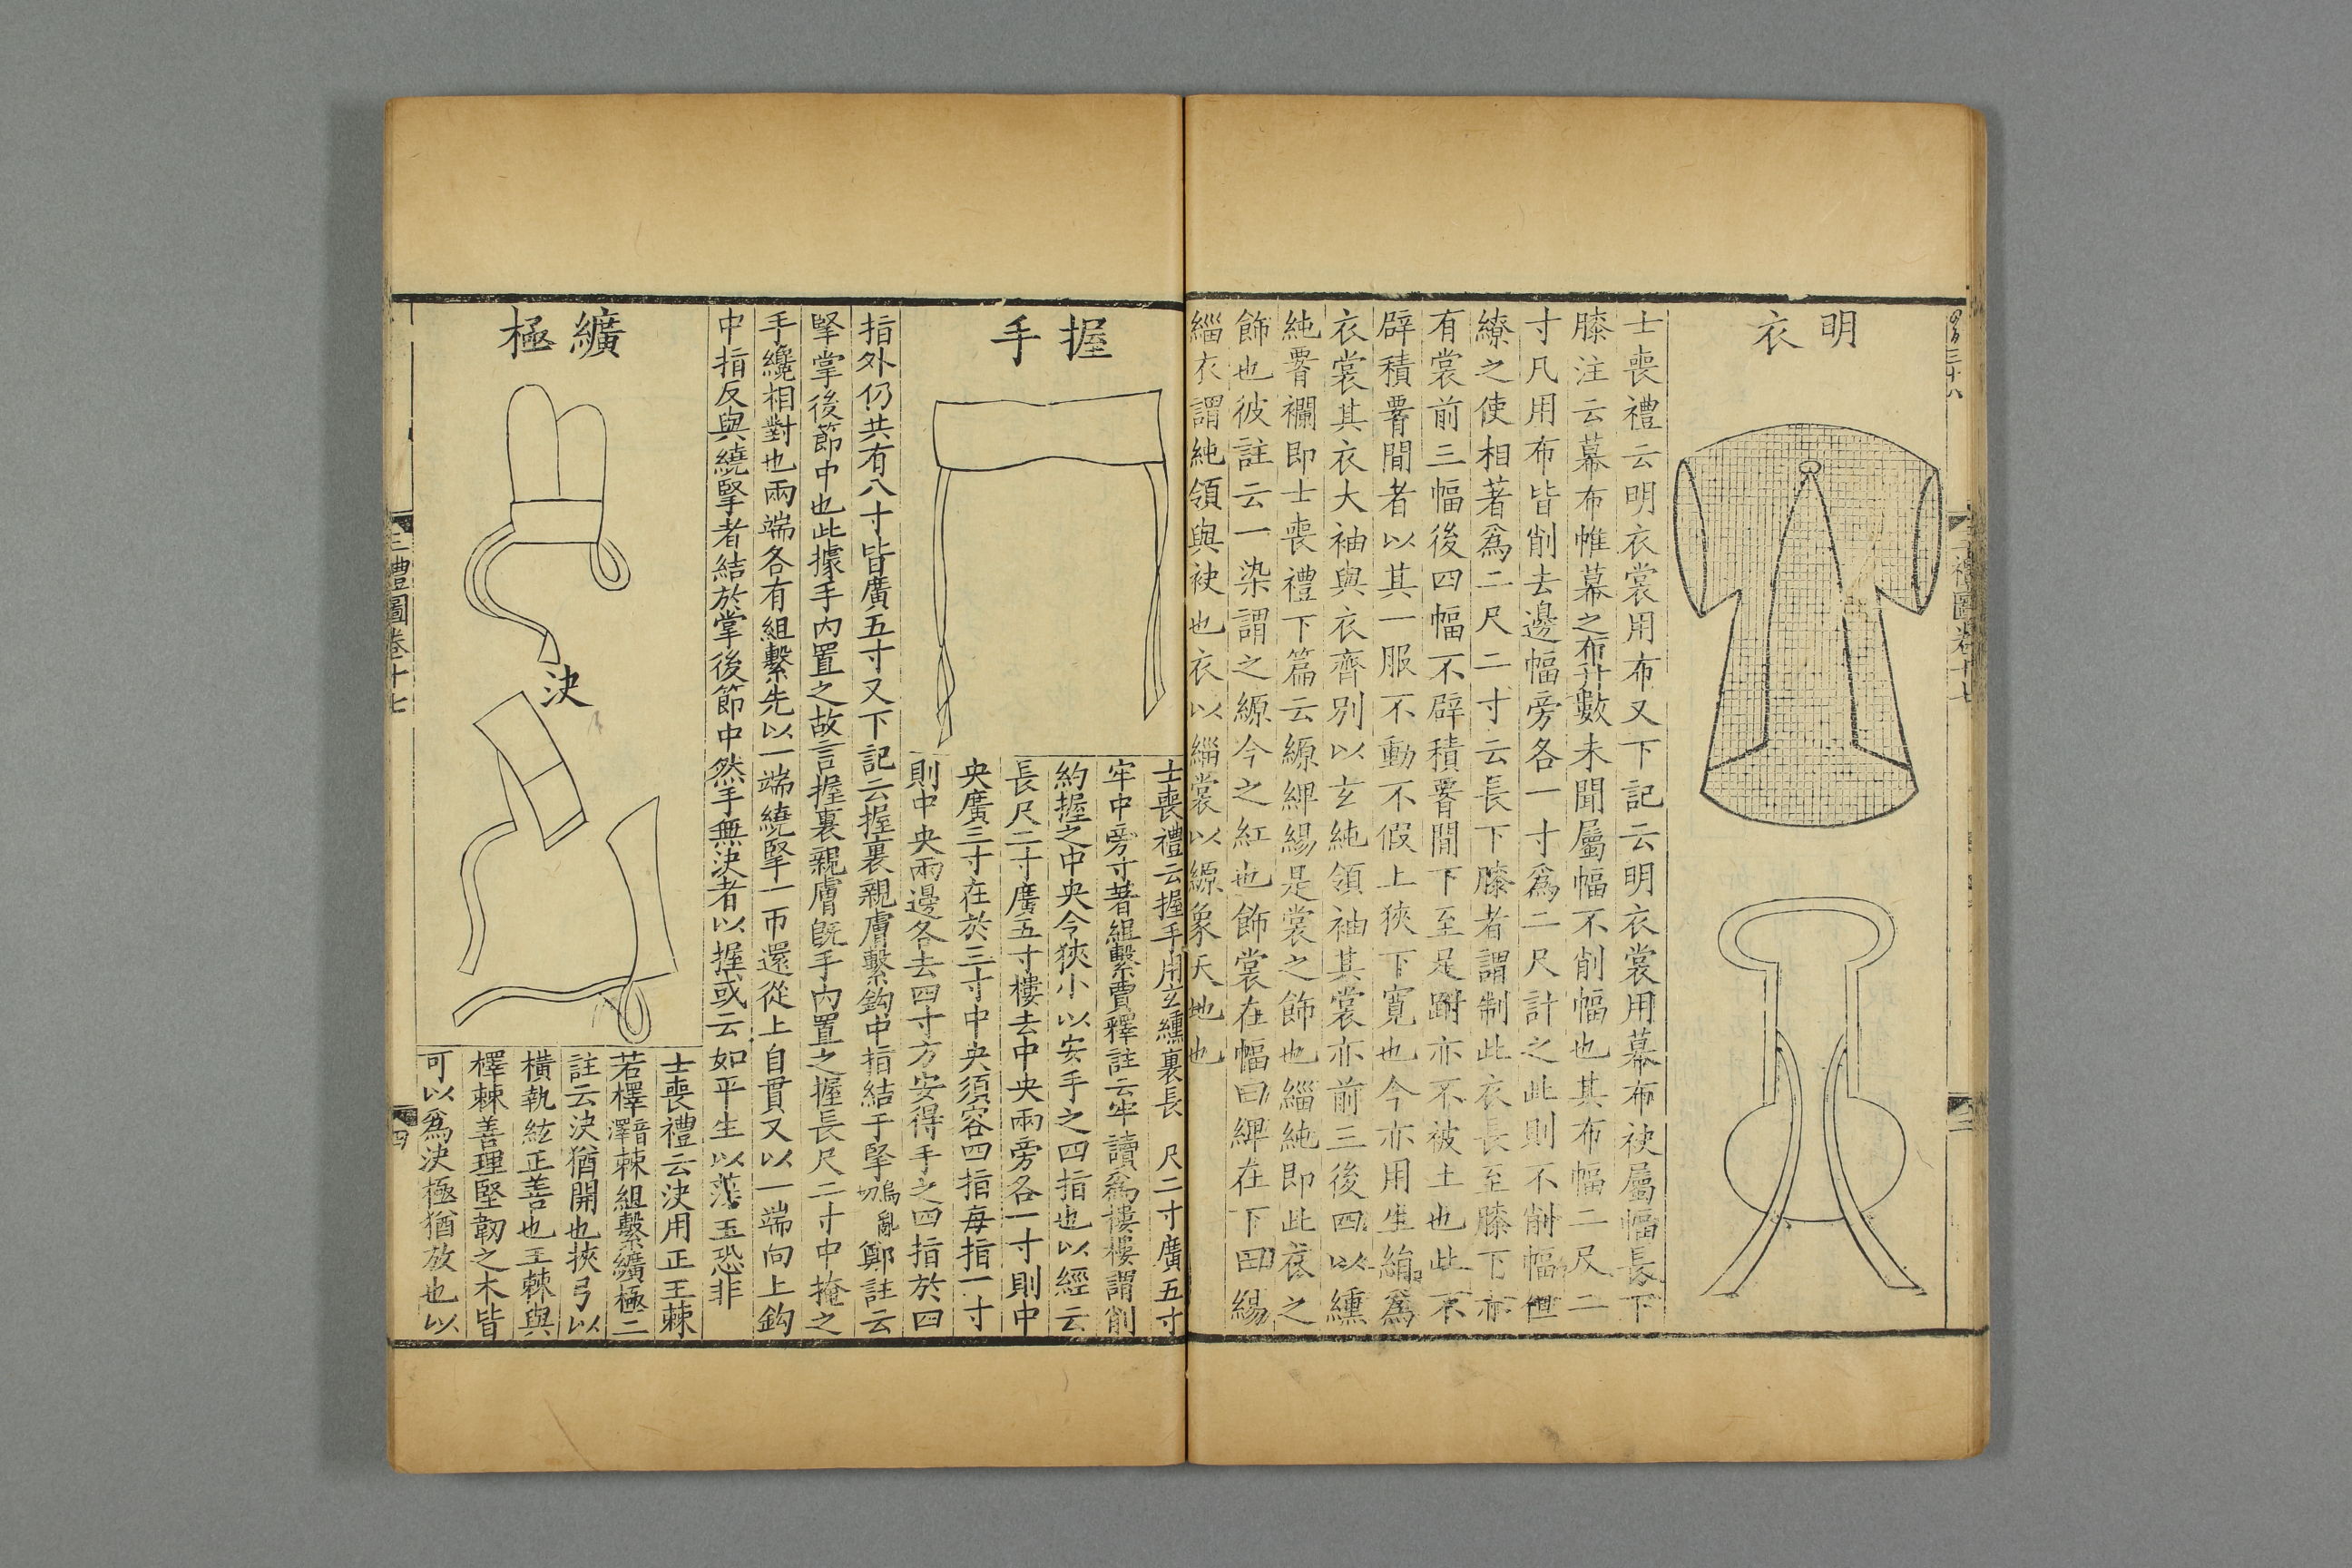 明衣
士喪禮云明衣裳用布又下記云明衣裳用幕布袂屬幅長下
膝注云幕布帷幕之布升數未聞屬幅不削幅也其布幅二尺二
寸凡用布皆削去邊幅旁各一寸爲二尺計之此則不削幅但
繚之使相著爲二尺二寸云長下膝者謂制此衣長至膝下亦
有裳前三幅後四幅不辟積䯗間下至足跗亦不被土也此不
辟積䯗間者以其一服不動不假上狹下寬也今亦用生絹爲
衣裳其衣大袖與衣齊別以玄純領袖其裳亦前三後四以纁
純䯗襴即士喪禮下篇云縓綼緆是裳之飾也緇純即此衣之
飾也彼註云一染謂之縓今之紅也飾裳在幅曰綼在下曰緆
緇衣謂純領與袂也衣以緇裳以縓象天地也
三禮圖卷十七
握手
士喪禮云握手用玄纁裏長尺二寸廣五寸
牢中旁寸著組繫賈釋註云牢讀爲樓樓謂削
約握之中央今狹小以安手之四指也以經云
長尺二寸廣五寸樓去中央兩旁各一寸則中
央廣三寸在於三寸中央須容四指每指一寸
則中央兩邊各去四寸方安得手之四指於四
指外仍共有八寸皆廣五寸又下記云握裏親膚繫鈎中指結于掔烏亂切鄭註云
掔掌後節中也此據手內置之故言握裏親膚旣手內置之握長尺二寸中掩之
手纔相對也兩端各有組繫先以一端繞掔一帀還從上自貫又以一端向上鈎
中指反與繞掔者結於掌後節中然手無決者以握或云如平生以藻玉恐非
纊極
決
士喪禮云決用正王棘
若檡澤音棘組繫纊極二
註云決猶開也挾弓以
橫執絃正善也王棘與
檡棘善理堅韌之木皆
可以爲決極猶放也以
三禮圖卷十七
四